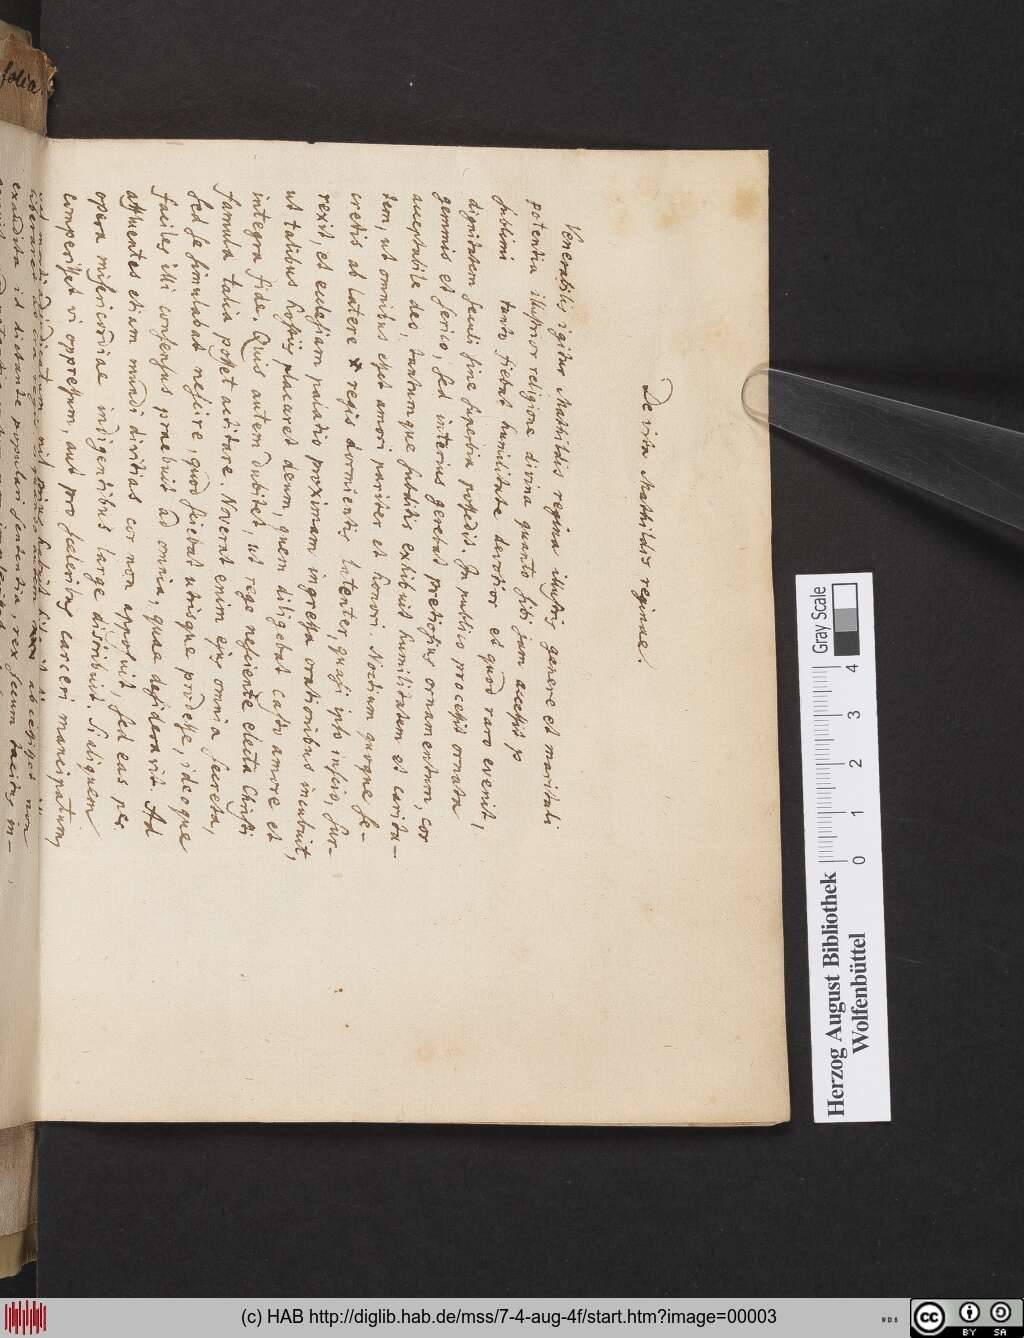 De vita Mathildis reginae.
Venerabilis igitur Mathildis regina illustris genere et maritali
potentia illustrior religione divina quanto sibi jam accessit
sublimi tanto fiebat humilitate devotior et quod raro evenit,
dignitatem seculi sine superbia possedit. In publico processit ornata
gemmis et serico, sed interius gerebat pretiosius ornamentum, cor
acceptabile deo, tantumque subditis exhibuit humilitatem et carita-
tem, ut omnibus esset amori pariter et honori. Noctium quoque se-
cretis ab latere regis dormientis latenter, quasi ipso inscio, sur-
rexit, et ecclesiam palatio proximam ingressa orationibus incubuit,
ut talibus hostiis placaret deum, quem diligebat casto amore et
integra fide. Quis autem dubitet, ut rege nesciente electa Christi
famula talia posset actitare. Noverat enim ejus omnia secreta,
sed se simulabat nescire, quod sciebat utrisque prodesse, ideoque
faciles illi consensus praebuit ad omnia, quae desideravit. Ad
affluentes etiam mundi divitias cor non apposuit, sed eas per
opera misericordiae indigentibus large distribuit. Si aliquem
comperisset vi oppressum, aut pro sceleribus carceri mancipatum,
folia
Herzog August Bibliothek
Wolfenbüttel
Gray Scale
0 1 2 3 4
(c) HAB http://diglib.hab.de/mss/7-4-aug-4f/start.htm?image=00003
cc BY SA